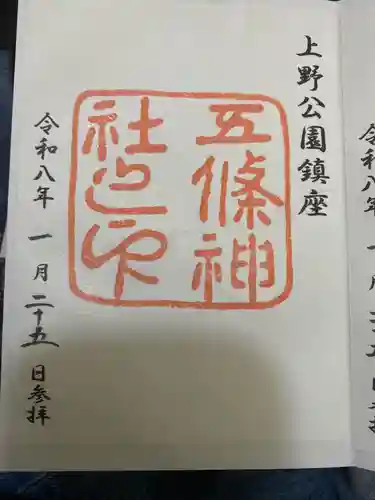 上野公園鎮座
五條神
社之印
令和八年 一月二十五日参拝
令和八年 一月